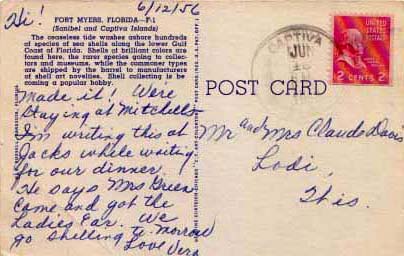 Hi!
6/12/56
FORT MYERS, FLORIDA—F-1
(Sanibel and Captiva Islands)
The ceaseless tide washes ashore hundreds
of species of sea shells along the lower Gulf
Coast of Florida. Shells of brilliant colors are
found here, the rarer species going to collec-
tors and museums, while the commoner types
are shipped by the barrel to manufacturers
of shell art novelties. Shell collecting is be-
coming a popular hobby.
Made it! Were
staying at Mitchells
I'm writing this at
Jacks while waiting
for our dinner.
He says Mrs Green
came and got the
Ladies Ear. We
go shelling to-morrow
Love Vera
POST CARD
CAPTIVA
JUN
UNITED
STATES
POSTAGE
2 CENTS 2
Mr and Mrs Claude Davis
Lodi,
This.